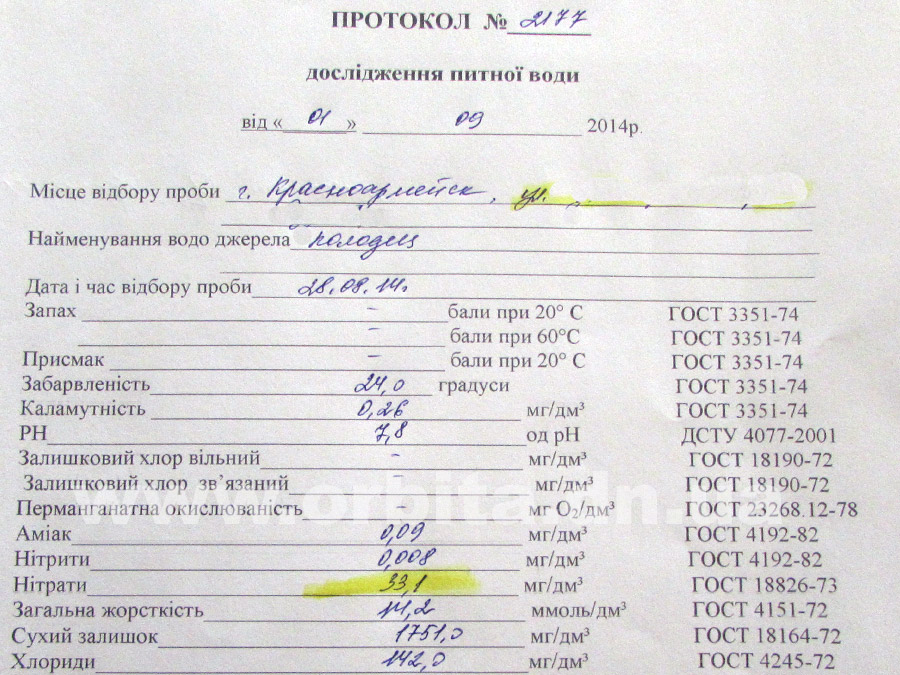 ПРОТОКОЛ № 2177
дослідження питної води
від « 01 » 09 2014р.
Місце відбору проби г. Красноармейск, ул.
Найменування водо джерела колодец
Дата і час відбору проби 28.08.14г.
Запах - бали при 20° С ГОСТ 3351-74
- бали при 60°С ГОСТ 3351-74
Присмак - бали при 20° С ГОСТ 3351-74
Забарвленість 24,0 градуси ГОСТ 3351-74
Каламутність 0,26 мг/дм³ ГОСТ 3351-74
РН 7,8 од рН ДСТУ 4077-2001
Залишковий хлор вільний - мг/дм³ ГОСТ 18190-72
Залишковий хлор зв'язаний - мг/дм³ ГОСТ 18190-72
Перманганатна окислюваність - мг О₂/дм³ ГОСТ 23268.12-78
Аміак 0,09 мг/дм³ ГОСТ 4192-82
Нітрити 0,008 мг/дм³ ГОСТ 4192-82
Нітрати 33,1 мг/дм³ ГОСТ 18826-73
Загальна жорсткість 14,2 ммоль/дм³ ГОСТ 4151-72
Сухий залишок 1751,0 мг/дм³ ГОСТ 18164-72
Хлориди 142,0 мг/дм³ ГОСТ 4245-72